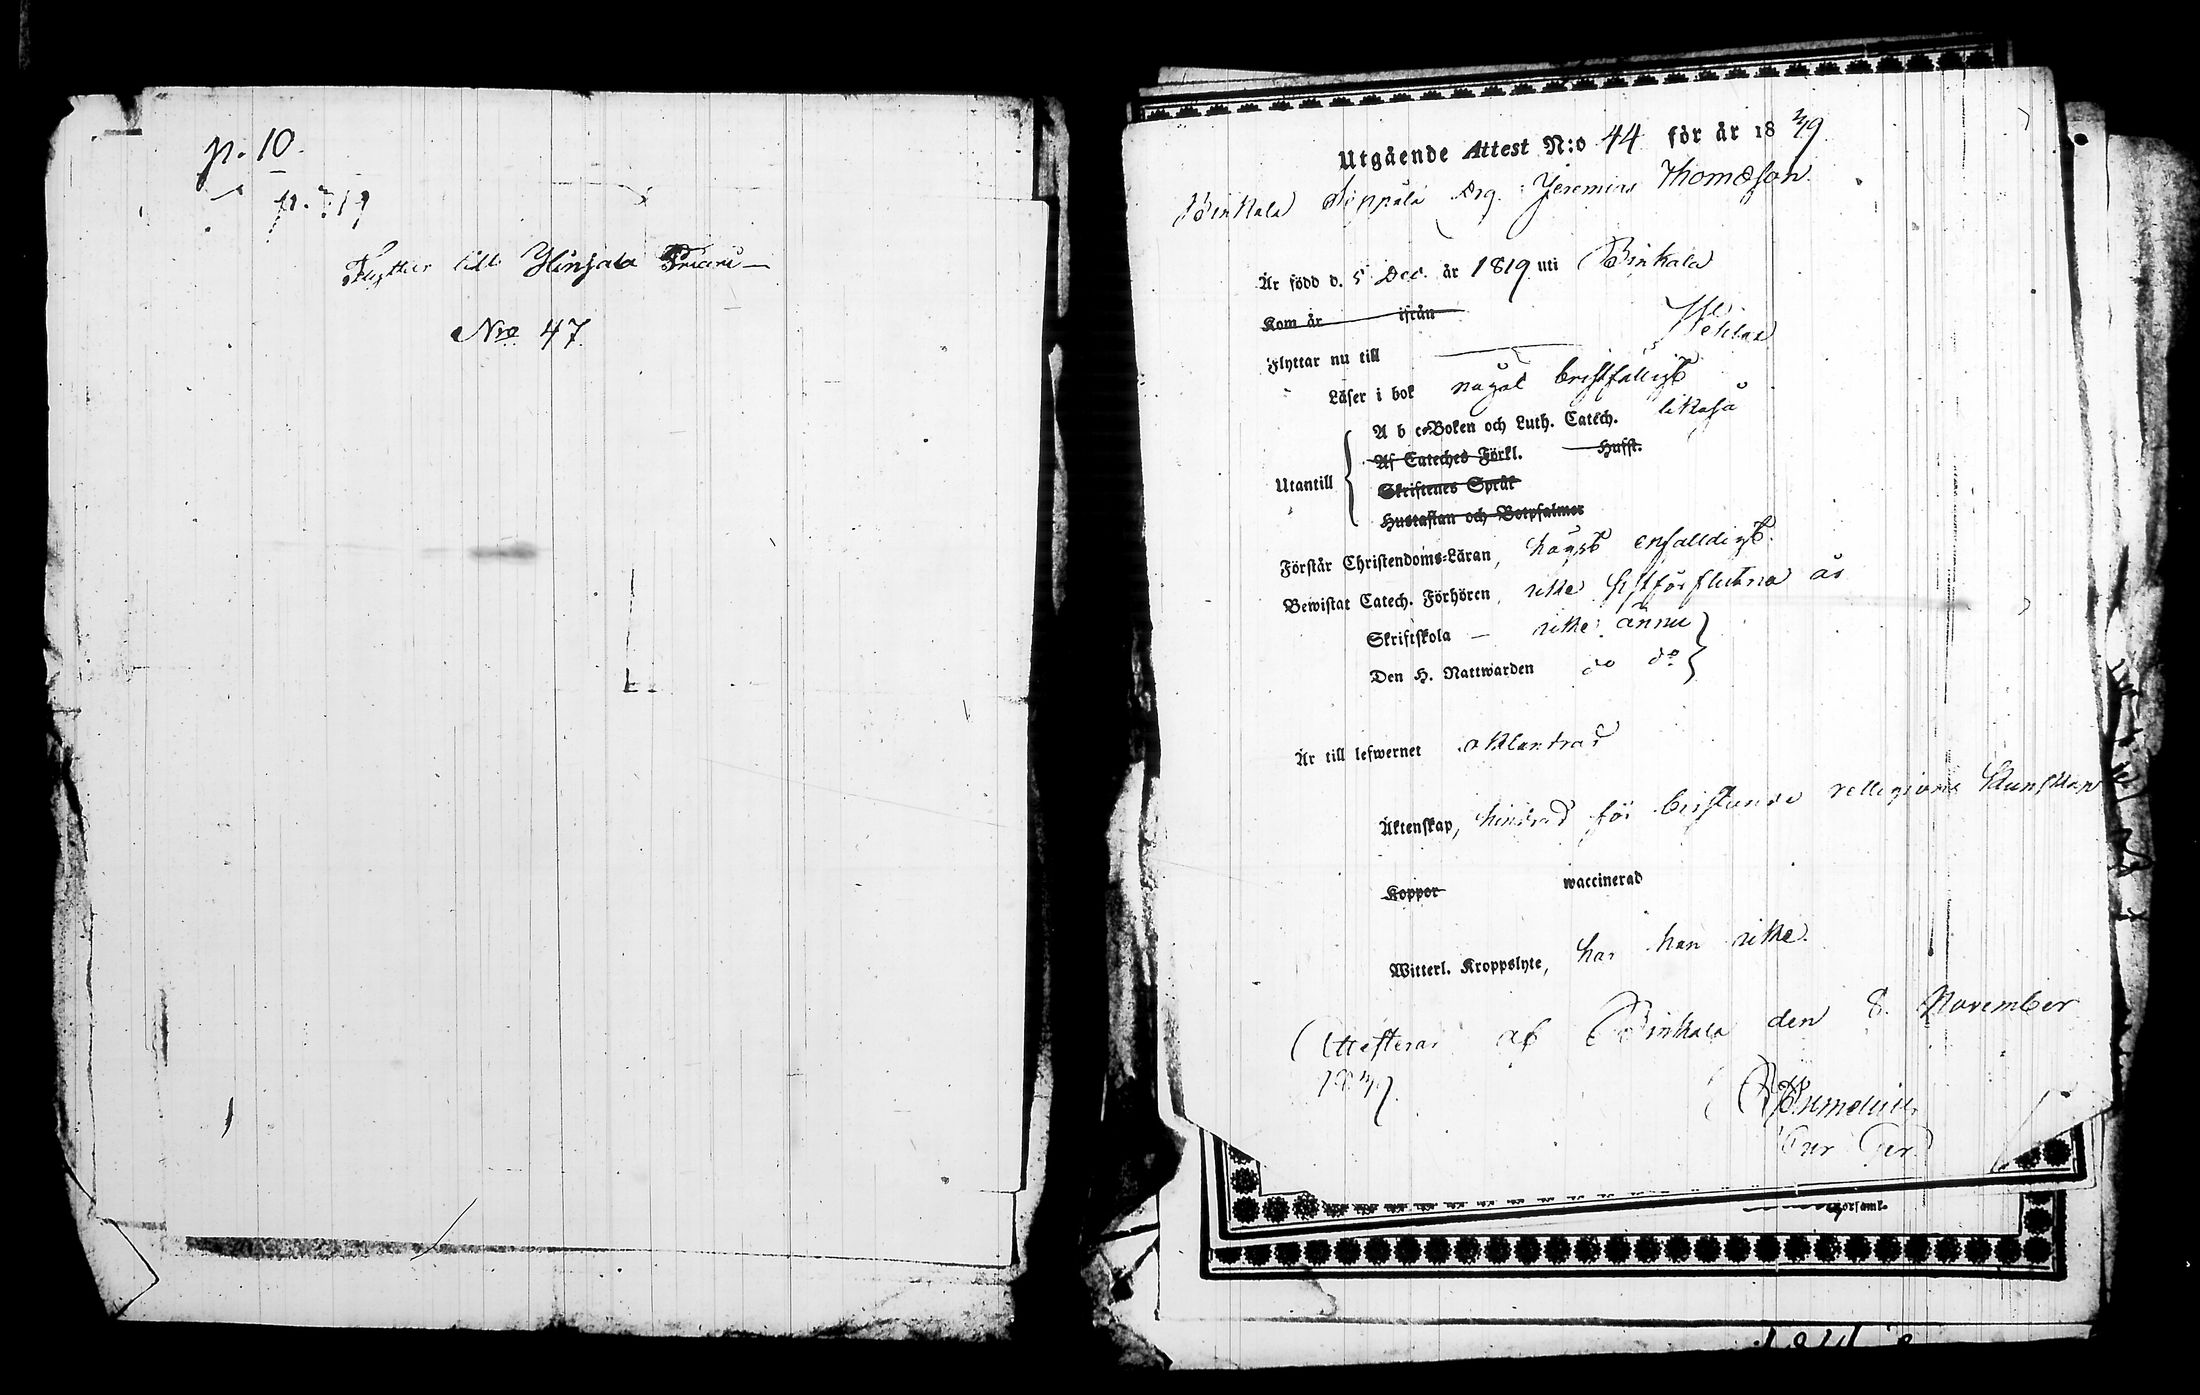 p. 10.
p. 719
Flyttar till Hinjala Friari
Nro 47.
Utgående Attest N:o 44 för år 1839
Binkala Seppälä Drg. Jeremias Thomæson
Är född d. 5 Dec. år 1819 uti Birkala
Kom år ifrån
Flyttar nu till Wesilax
Läser i bok något bristfälligt
A b c-Boken och Luth. Catech. likaså
Af Cateches Förkl. Husst.
Utantill
Skriftenes Språk
Hustaflan och Botpsalmer
Förstår Christendoms-Läran, högst enfalldigt.
Bewistat Catech. Förhören, icke sistförflutna år
Skriftskola — icke ännu
Den H. Nattwarden do do
Är till lefwernet oklandrad
Äktenskap, hindrad för bristande religions kunskap
Koppor waccinerad
Witterl. Kroppslyte, har han icke.
Attesterar af Birkala den 8. November
1839.
Cur
Församl.